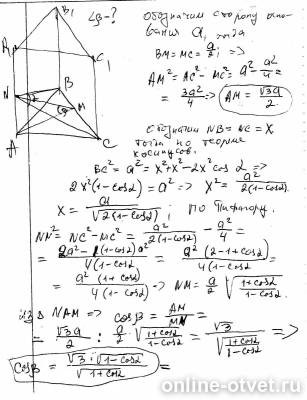 B₁
∠β-?
обозначим сторону осно-
вания a, тогда
A₁
C₁
BM = MC = a/2; =>
AM² = AC² - MC² = a² - a²/4 =
= 3a²/4 => AM = √3a/2
N
B
M
A
C
NB = NC = X
тогда по теореме
косинусов:
BC² = a² = x² + x² - 2x² cos α =>
2x²(1-cos α) = a² => x² = a²/2(1-cos α)
x = a/√2(1-cos α); по Пифагору:
= NC² - MC² = a²/2(1-cos α) - a²/4 =
= a²(1+cos α)/4(1-cos α) => NM = a/2 √1+cos α/1-cos α
из Δ NAM => cos β = AM/MN =
= √3a/2 : a/2 √1+cos α/1-cos α = √3/√1+cos α/1-cos α =>
cos β = √3·√1-cos α/√1+cos α =
online-otvet.ru